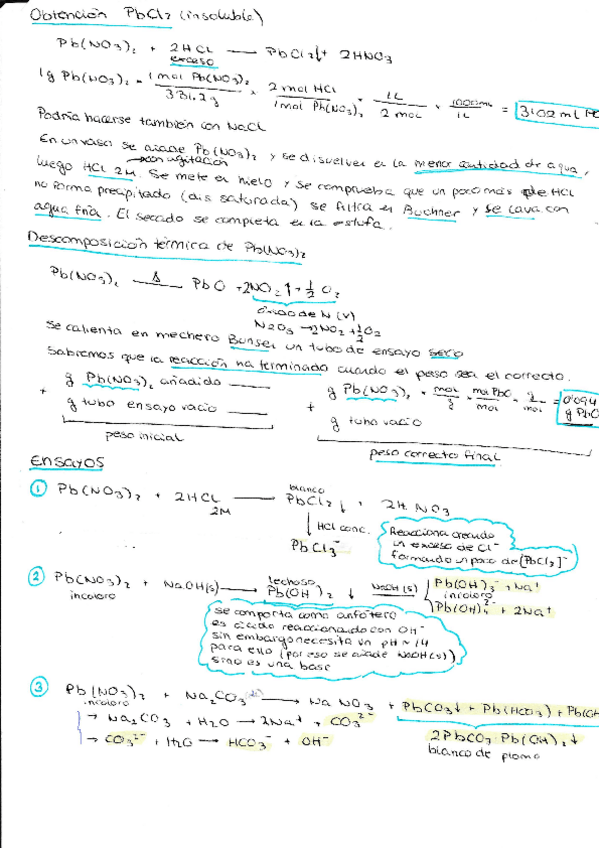 Obtención PbCl₂ (insoluble)
Pb(NO₃)₂ + 2HCl → PbCl₂↓ + 2HNO₃
exceso
1g Pb(NO₃)₂ · 1 mol Pb(NO₃)₂ / 331.2 g × 2 mol HCl / 1 mol Pb(NO₃)₂ × 1L / 2 mol × 1000mL / 1L = 3'02 ml
Podría hacerse también con NaCl
En un vaso se añade Pb(NO₃)₂ y se disuelve en la menor cantidad de agua,
luego HCl 2M. Se mete en hielo y se comprueba que un poco más de HCl
con agitación
no forma precipitado (dis saturada) se filtra en Buchner y se lava con
agua fría. El secado se completa en la estufa.
Descomposición térmica de Pb(NO₃)₂
Pb(NO₃)₂ —Δ→ PbO + 2NO₂↑ + 1/2 O₂
óxido de N (V)
N₂O₅ → 2NO₂ + 1/2 O₂
Se calienta en mechero Bunsen un tubo de ensayo seco
Sabremos que la reacción ha terminado cuando el peso sea el correcto.
g Pb(NO₃)₂ añadido ____ g Pb(NO₃)₂ · mol / g · mol PbO / mol · g / mol = 0'094 g PbO
+ g tubo ensayo vacío ____ + g tubo vacío
peso inicial peso correcto final
Ensayos
① Pb(NO₃)₂ + 2HCl → PbCl₂↓ + 2HNO₃
2M blanco
HCl conc.
PbCl₃⁻
Reacciona creando
un exceso de Cl⁻
formando un poco de [PbCl₃]⁻
② Pb(NO₃)₂ + NaOH(s) → Pb(OH)₂↓ —NaOH(s)→ Pb(OH)₃⁻ + Na⁺
incoloro lechoso incoloro
Pb(OH)₄²⁻ + 2Na⁺
se comporta como anfótero
es ácido reaccionando con OH⁻
sin embargo necesita un pH ~ 14
para ello (por eso se añade NaOH(s))
sino es una base
③ Pb(NO₃)₂ + Na₂CO₃ → NaNO₃ + PbCO₃↓ + Pb(HCO₃) + Pb(OH
incoloro
→ Na₂CO₃ + H₂O → 2Na⁺ + CO₃²⁻
2PbCO₃·Pb(OH)₂↓
→ CO₃²⁻ + H₂O → HCO₃⁻ + OH⁻
blanco de plomo